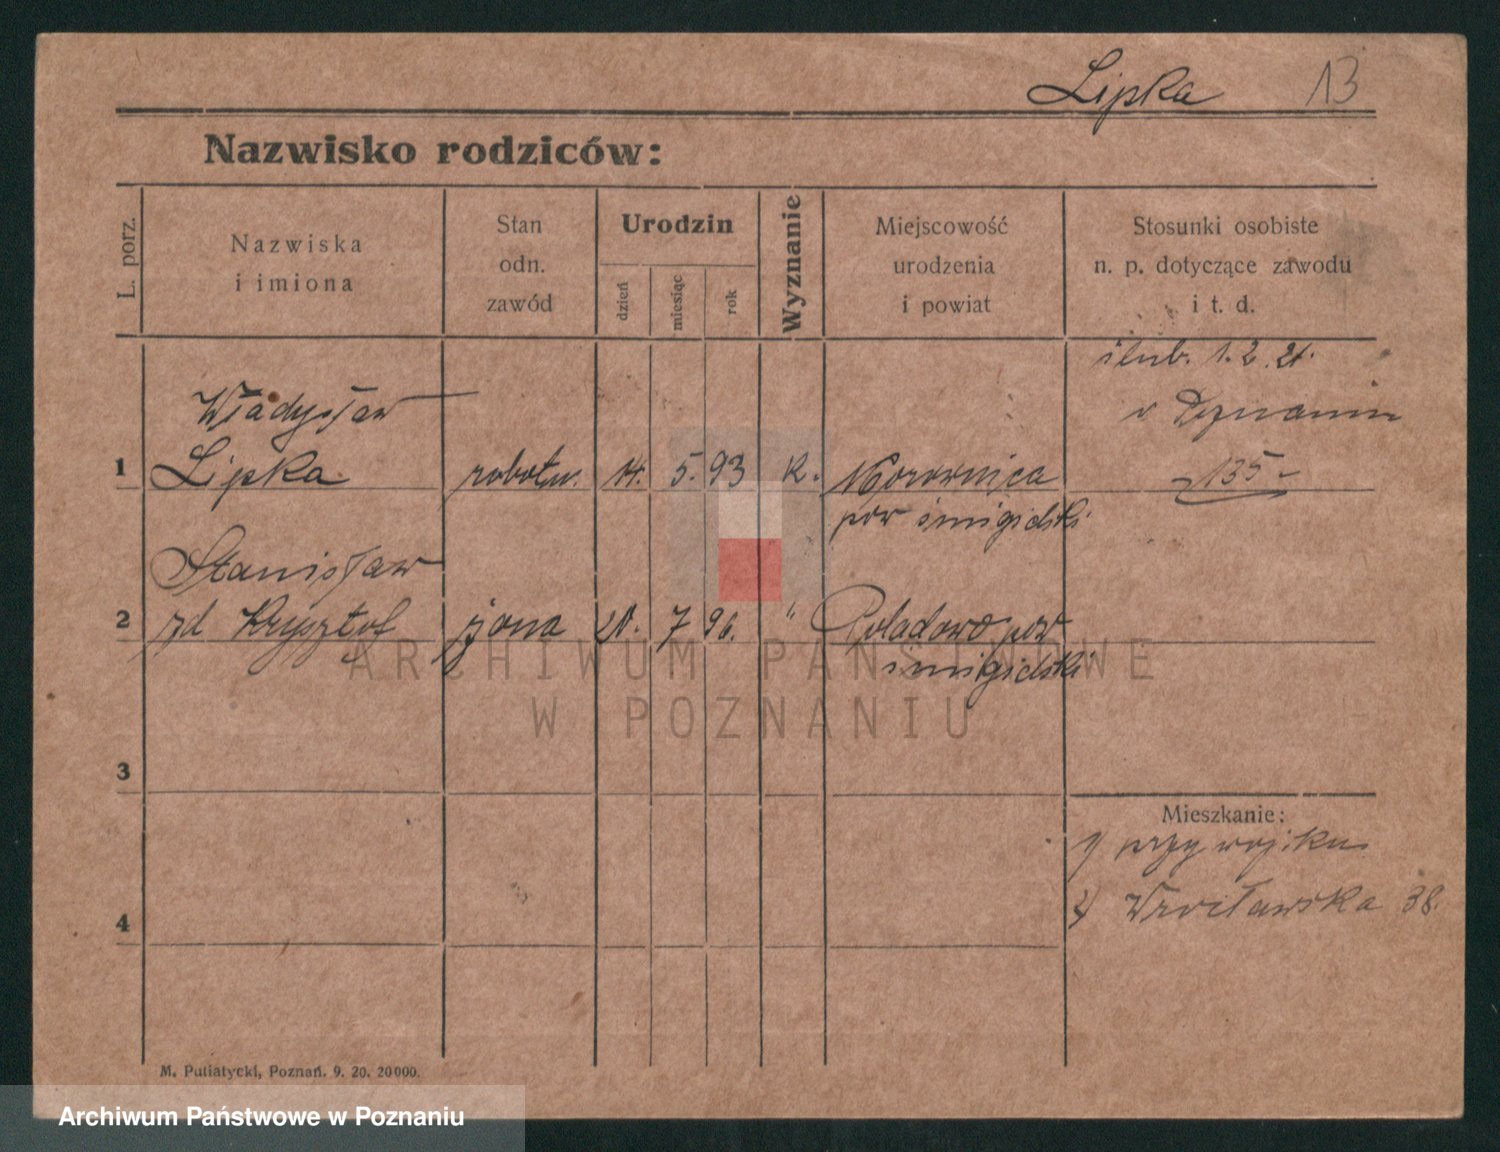 Lipka 13
Nazwisko rodziców:
L. porz.
Nazwiska
i imiona
Stan
odn.
zawód
Urodzin
dzień
miesiąc
rok
Wyznanie
Miejscowość
urodzenia
i powiat
Stosunki osobiste
n. p. dotyczące zawodu
i t. d.
ślub. 1. 2. 21.
w Poznaniu
135
Władysław
1 Lipka robotn. 14. 5. 93 K. Morownica
pow śmigielski
Stanisława
2 zd Krysztof żona 20. 7 96. " Poladowo pow
śmigielski
3
4
Mieszkanie:
1/ przy wojsku
2/ Wrocławska 38.
M. Putiatycki, Poznań. 9. 20. 20000.
ARCHIWUM PAŃSTWOWE
W POZNANIU
Archiwum Państwowe w Poznaniu